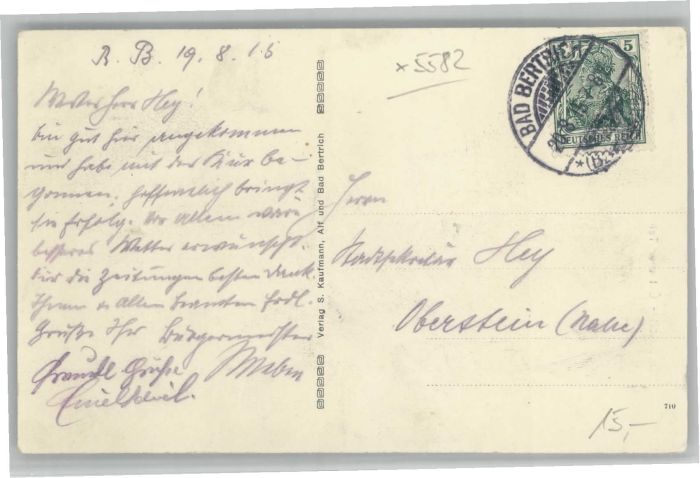 B. B. 19. 8. 15
* 5582
Herr Hey!
bin gut hier angekommen
und habe mit der Kur be-
gonnen. Hoffentlich bringt
sie Erfolg. Vor allem wäre
besseres Wetter erwünscht.
Für die Zeitungen besten Dank
Ihnen u. allen Beamten frdl.
Grüße Ihr Bürgermeister
Freundl. Grüße
Verlag S. Kaufmann, Alf und Bad Bertrich
BAD BERTRICH
5
DEUTSCHES REICH
Herrn
Stadtsekretär Hey
Oberstein (Nahe)
710
15,-